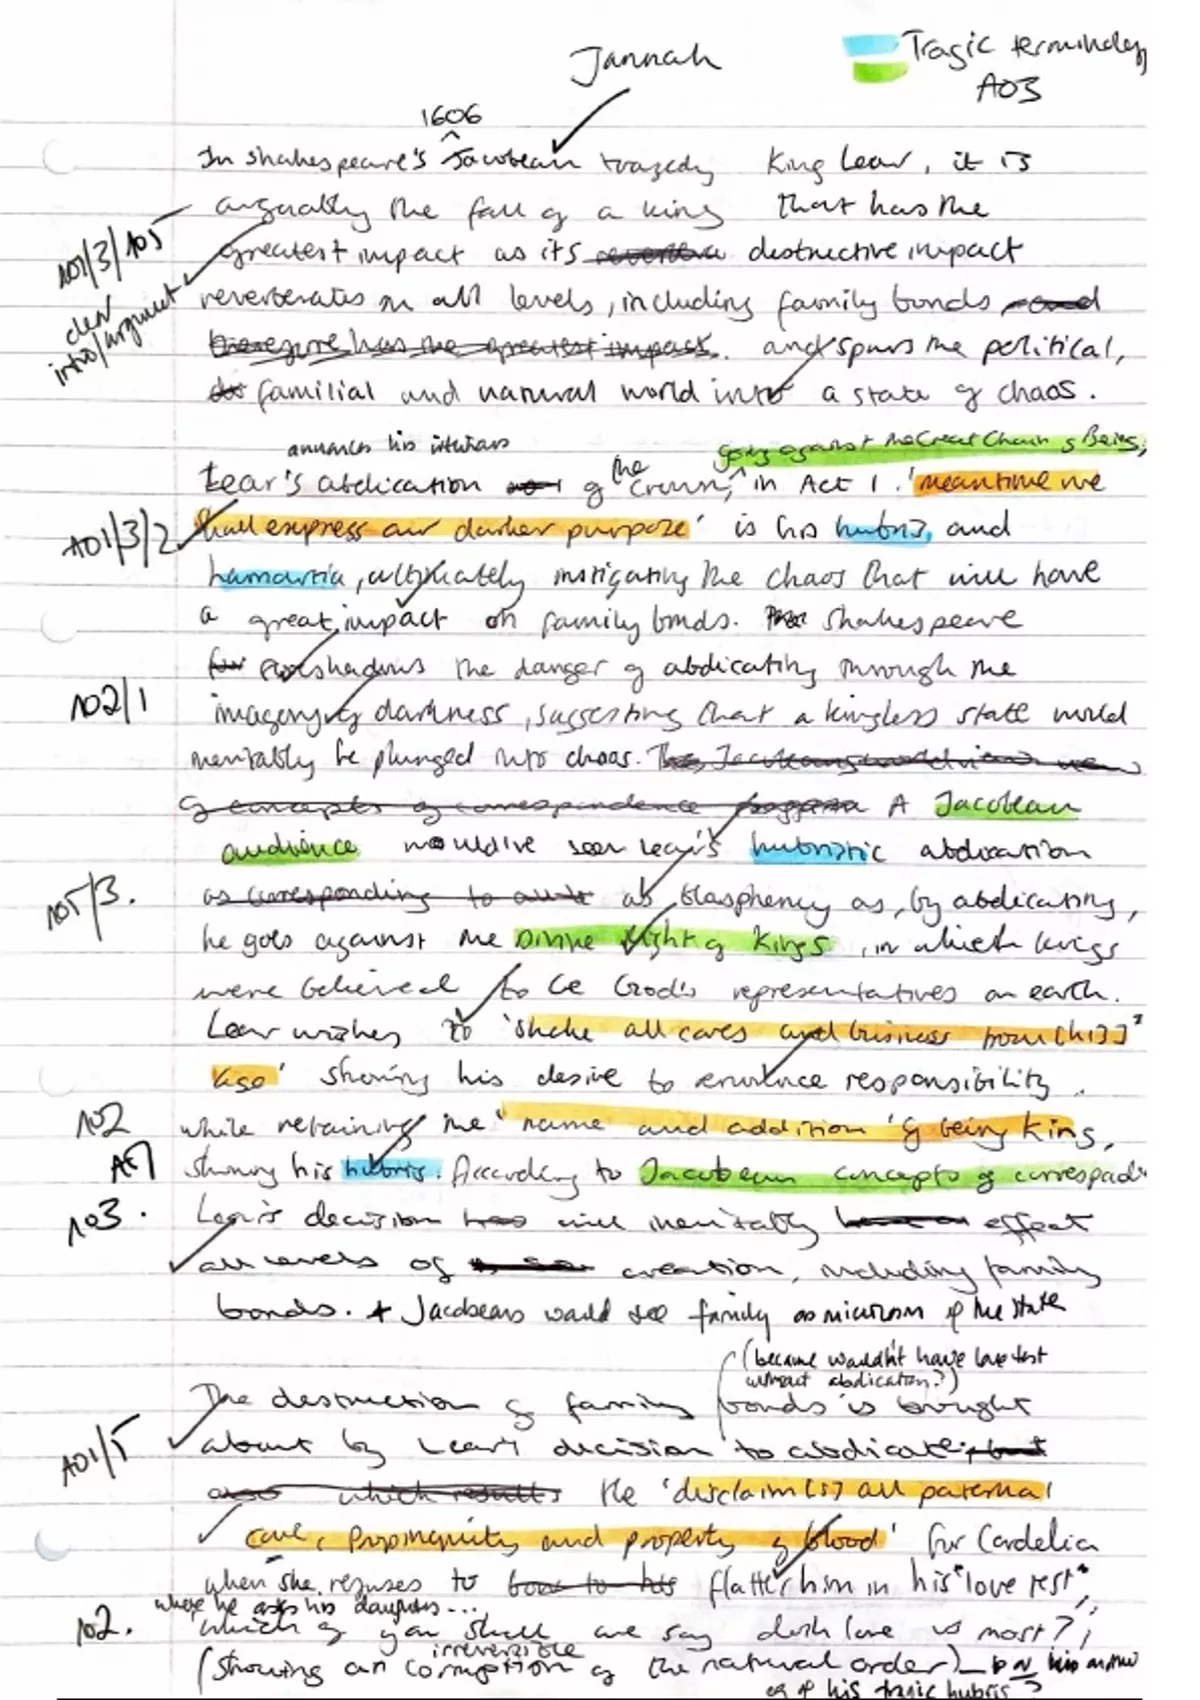 Jannah
Tragic terminology
AO3
1606
In Shakespeare's Jacobean tragedy King Lear, it is
arguably the fall of a king that has the
AO1/3/AO5
greatest impact as its destructive impact
clear intro/argument
reverberates on all levels, including family bonds
and spurs the political,
familial and natural world into a state of chaos.
announces his intentions
going against the Great Chain of Being,
Lear's abdication of the crown, in Act 1. 'meantime we
AO1/3/2
shall express our darker purpose' is his hubris, and
hamartia, ultimately instigating the chaos that will have
a great impact on family bonds. Shakespeare
foreshadows the danger of abdicating through the
AO2/1
imagery of darkness, suggesting that a kingless state would
inevitably be plunged into chaos.
A Jacobean
audience would've seen Lear's hubristic abdication
AO5/3.
as corresponding to as blasphemy as, by abdicating,
he goes against the Divine Right of Kings, in which kings
were believed to be God's representatives on earth.
Lear wishes to 'shake all cares and business from [his]
age' showing his desire to renounce responsibility
AO2
while retaining the 'name and addition' of being King,
showing his hubris. According to Jacobean concepts of
AO3.
Lear's decision will inevitably effect
all levels of creation, including family
bonds. + Jacobeans would see family as microcosm of the state
(because wouldn't have love test
without abdication?)
The destruction of family bonds is brought
AO1/5
about by Lear's decision to abdicate
which results the 'disclaim[s] all paternal
care, Propinquity and property of blood' for Cordelia
when she refuses to flatter him in his "love test",
where he asks his daughters...
AO2.
'which of you shall we say doth love us most?',
irreversible
(showing an corruption of the natural order)
of his tragic hubris